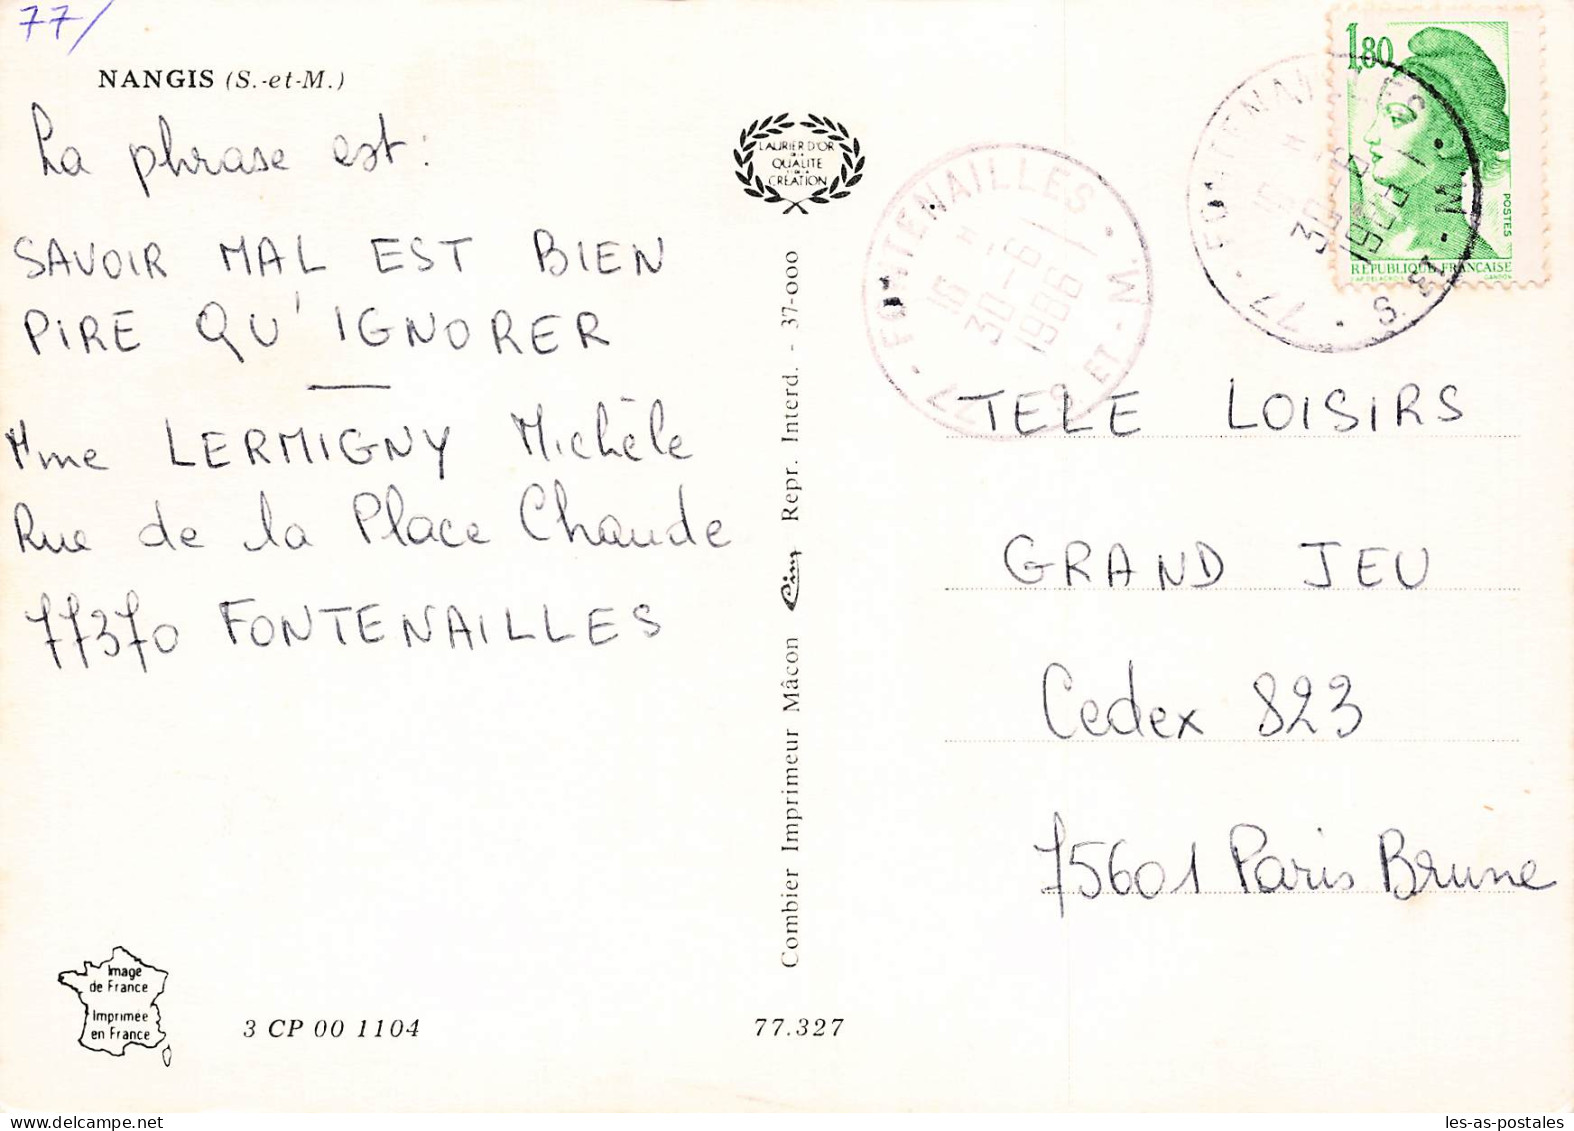 77/
NANGIS (S.-et-M.)
La phrase est :
SAVOIR MAL EST BIEN
PIRE QU'IGNORER
Mme LERMIGNY Michèle
Rue de la Place Chaude
77370 FONTENAILLES
Image
de France
Imprimée
en France
3 CP 00 1104
77.327
LAURIER D'OR
DE LA
QUALITÉ
CRÉATION
Combier Imprimeur Mâcon Cim Repr. Interd. - 37-000
77 · FONTENAILLES · S. ET - M.
16 H
30-6
1986
1,80
POSTES
RÉPUBLIQUE FRANÇAISE
GANDON
77 · FONTENAILLES · S. ET - M.
TELE LOISIRS
GRAND JEU
Cedex 823
75601 Paris Brune
les-as-postales